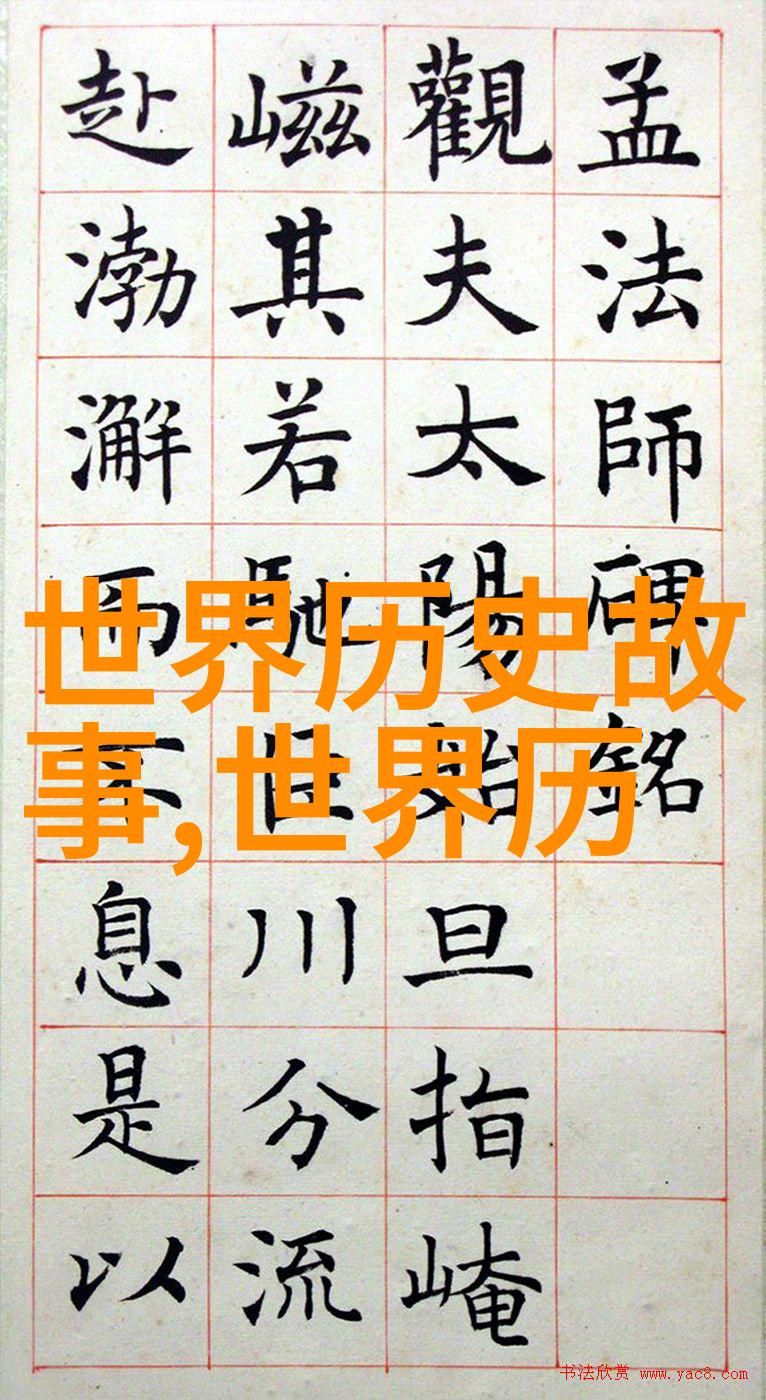 孟法師碑銘
觀夫太陽始旦指崦
嵫其若馳巨川分流
赴渤澥而不息是以
世界历史故
事,世界历
书法欣赏 www.yac8.com